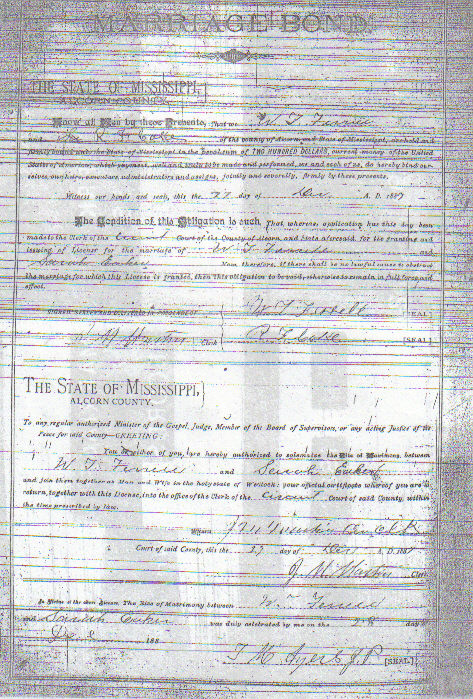 MARRIAGE BOND.
THE STATE OF MISSISSIPPI,
ALCORN COUNTY.
Know all Men by these Presents, That we W. T.
and of the county of Alcorn and State of Mississippi, are held and
firmly bound unto the State of Mississippi in the penal sum of TWO HUNDRED DOLLARS, current money of the United
States of America, which payment, well and truly to be made and performed, we and each of us, do hereby bind our-
selves, our heirs, executors, administrators and assigns, jointly and severally, firmly by these presents.
Witness our hands and seals, this the 27 day of Dec A. D. 1887
The Condition of this Obligation is such, That whereas, application has this day been
made to the Clerk of the Circuit Court of the County of Alcorn and State aforesaid, for the granting and
issuing of License for the marriage of W. T. and
Sarah Now, therefore, if there shall be no lawful cause to obstruct
the marriage for which this License is granted, then this obligation to be void, otherwise to remain in full force and
effect.
SIGNED, SEALED AND DELIVERED IN PRESENCE OF W. T. [SEAL]
Clerk [SEAL]
THE STATE OF MISSISSIPPI,
ALCORN COUNTY.
To any regular authorized Minister of the Gospel, Judge, Member of the Board of Supervisors, or any acting Justice of the
Peace for said County—GREETING:
You or either of you, are hereby authorized to solemnize the Rite of Matrimony, between
W. T. and Sarah
and join them together as Man and Wife in the holy state of Wedlock: your official certificate whereof you are to
return, together with this License, into the office of the Clerk of the Circuit Court of said County, within
the time prescribed by law.
Witness, Clerk
Court of said County, this the 27 day of Dec A. D. 188
Clerk
In Virtue of the above License, The Rite of Matrimony between W. T.
and Sarah was duly celebrated by me on the 28 day of
Dec 188
T. M. Ayers J. P. [SEAL]